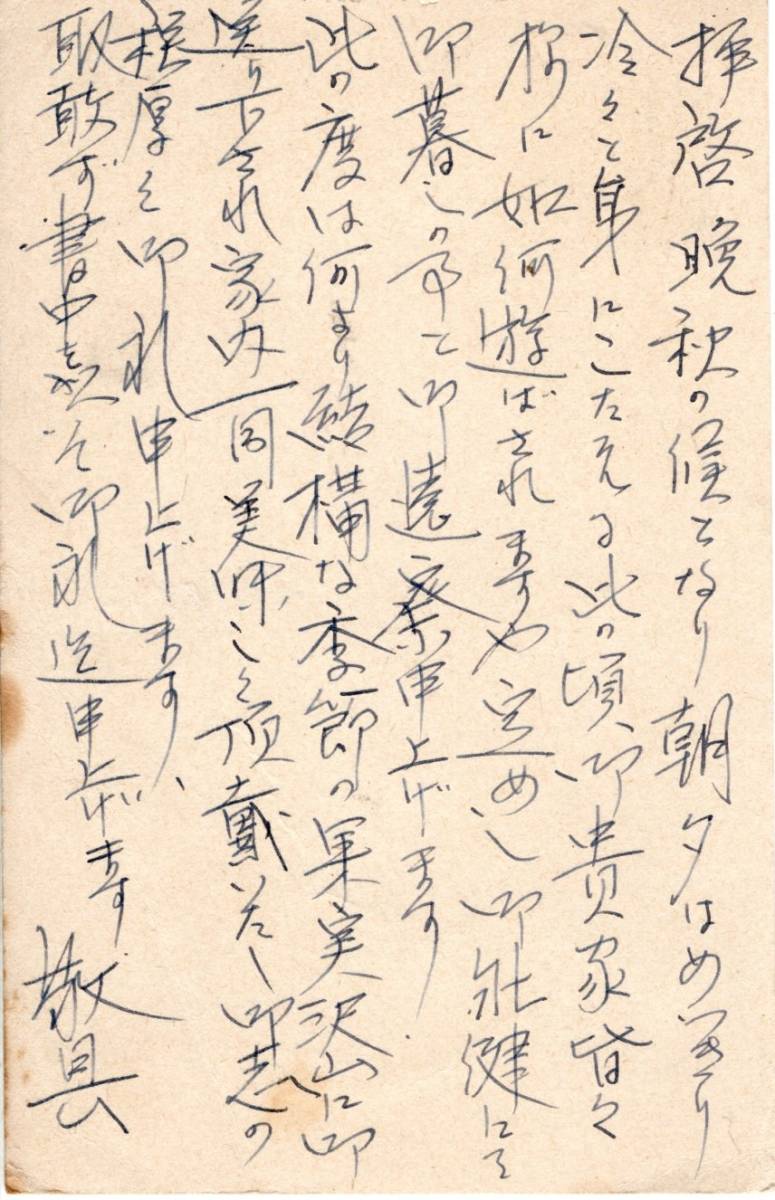 拝啓 晩秋の候となり 朝夕はめっきり
冷々と身にこたえる此の頃、御貴家皆々
様に如何遊ばされますや定めし御壮健にて
御暮しの事と御遠察申上げます.
此の度は何より結構な季節の果実沢山に御
送り下され家内一同美味しく頂戴いたし御志の
程厚く御礼申上げます、
取敢ず書中を以て御礼迄申上げます 敬具